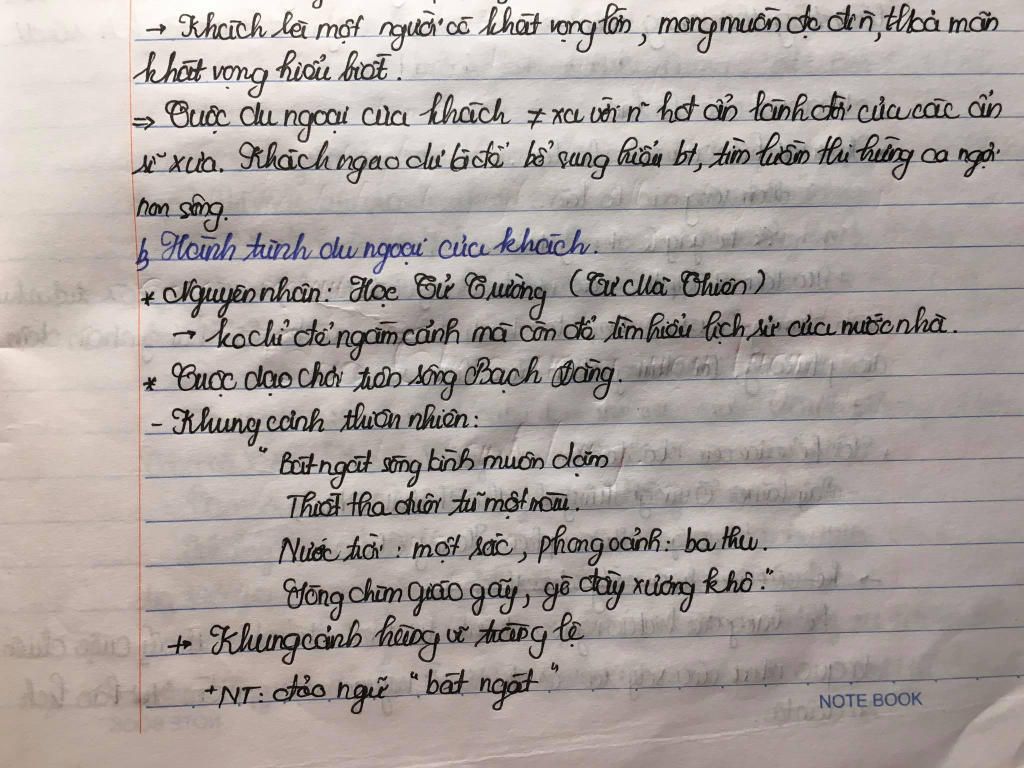 → Khách là một người có khát vọng lớn, mong muốn đc đi n`, thoả mãn
khát vọng hiểu biết.
⇒ Cuộc du ngoại của khách ≠ xa với n~ hđ ẩn lánh đời của các ẩn
sĩ xưa. Khách ngao du là để bổ sung hiểu bt, tìm luồm thi hứng ca ngợi
non sông.
b Hành trình du ngoại của khách.
* Nguyên nhân: Học Tử Trường (Tư Mã Thiên)
→ ko chỉ để ngắm cảnh mà còn để tìm hiểu lịch sử của nước nhà.
* Cuộc dạo chơi trên sông Bạch Đằng.
- Khung cảnh thiên nhiên:
"Bát ngát sông kình muôn dặm
Thướt tha đuôi trĩ một màu.
Nước trời: một sắc, phong cảnh: ba thu.
Sông chìm giáo gãy, gò đầy xương khô."
+ Khung cảnh hùng vĩ tráng lệ
+ NT: đảo ngữ "bát ngát"
NOTE BOOK